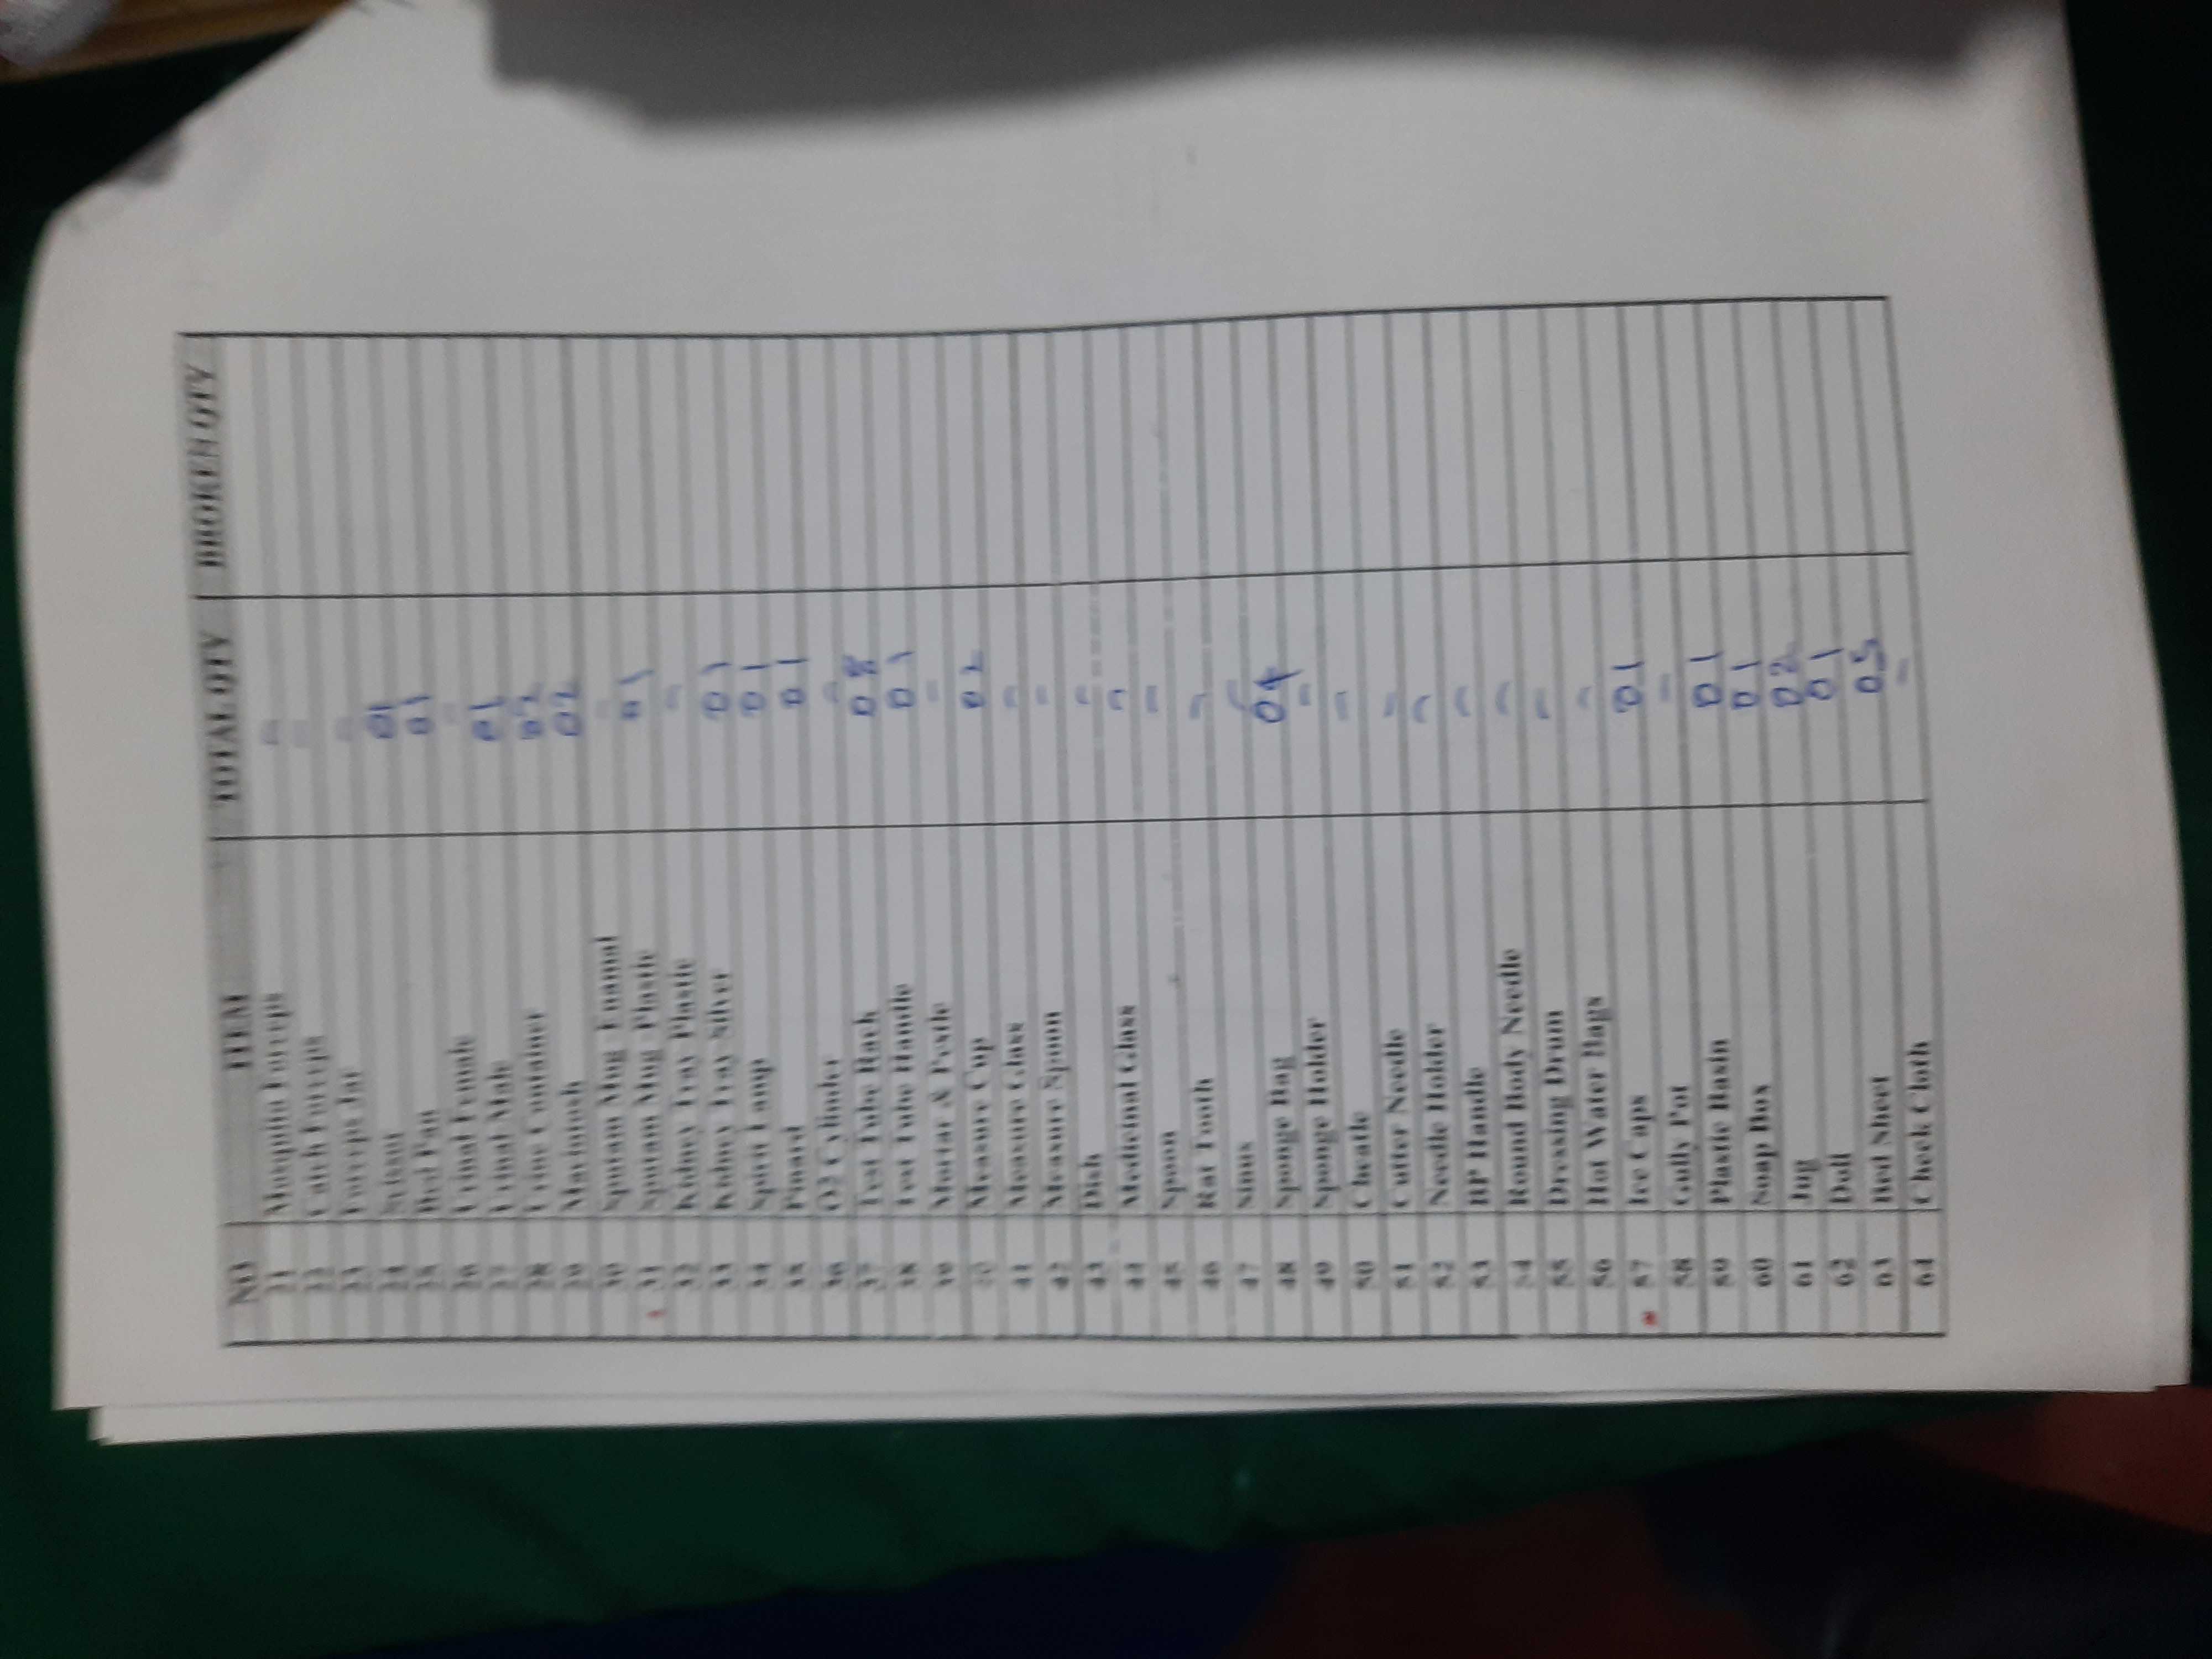 NO ITEM TOTAL QTY BROKEN QTY
21 Mosquito Forceps -
22 Catch Forceps -
23 Forceps Jar -
24 01
25 Bed Pan 01
26 Urinal Female -
27 Urinal Male 01
28 Urine Container
29 Macintosh 02
30 Sputam Mug Enamal -
31 Sputam Mug Plastic 01
32 Kidney Tray Plastic -
33 Kidney Tray Silver 01
34 Spirit Lamp 01
35 01
36 O2 Cylinder -
37 Test Tube Rach
38 Test Tube Handle 01
39 Mortar & Pestle -
40 Measure Cup 02
41 Measure Glass -
42 Measure Spoon -
43 Dish -
44 Medicinal Glass -
45 Spoon -
46 Rat Tooth -
47 Sinus -
48 Sponge Bag 04
49 Sponge Holder -
50 Cheatle -
51 Cutter Needle -
52 Needle Holder -
53 BP Handle -
54 Round Body Needle -
55 Dressing Drum -
56 Hot Water Bags -
57 Ice Caps 01
58 Gally Pot -
59 Plastic Basin 01
60 Soap Box 01
61 Jug 02
62 Doll 01
63 Bed Sheet 05
64 Check Cloth -